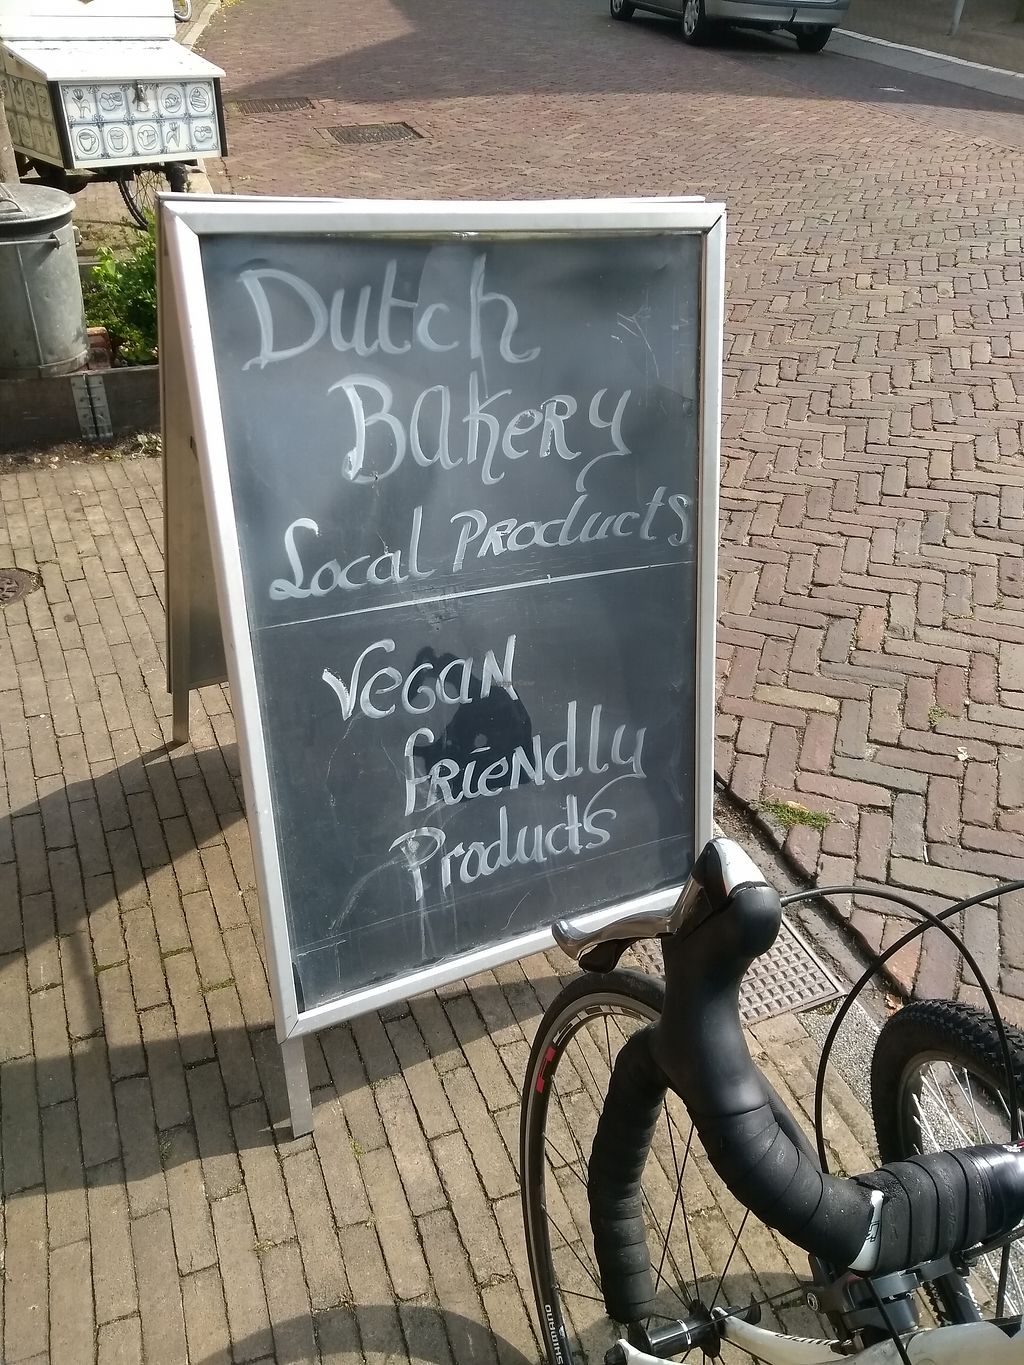 Dutch
Bakery
Local Products
Vegan
friendly
Products
SHIMANO